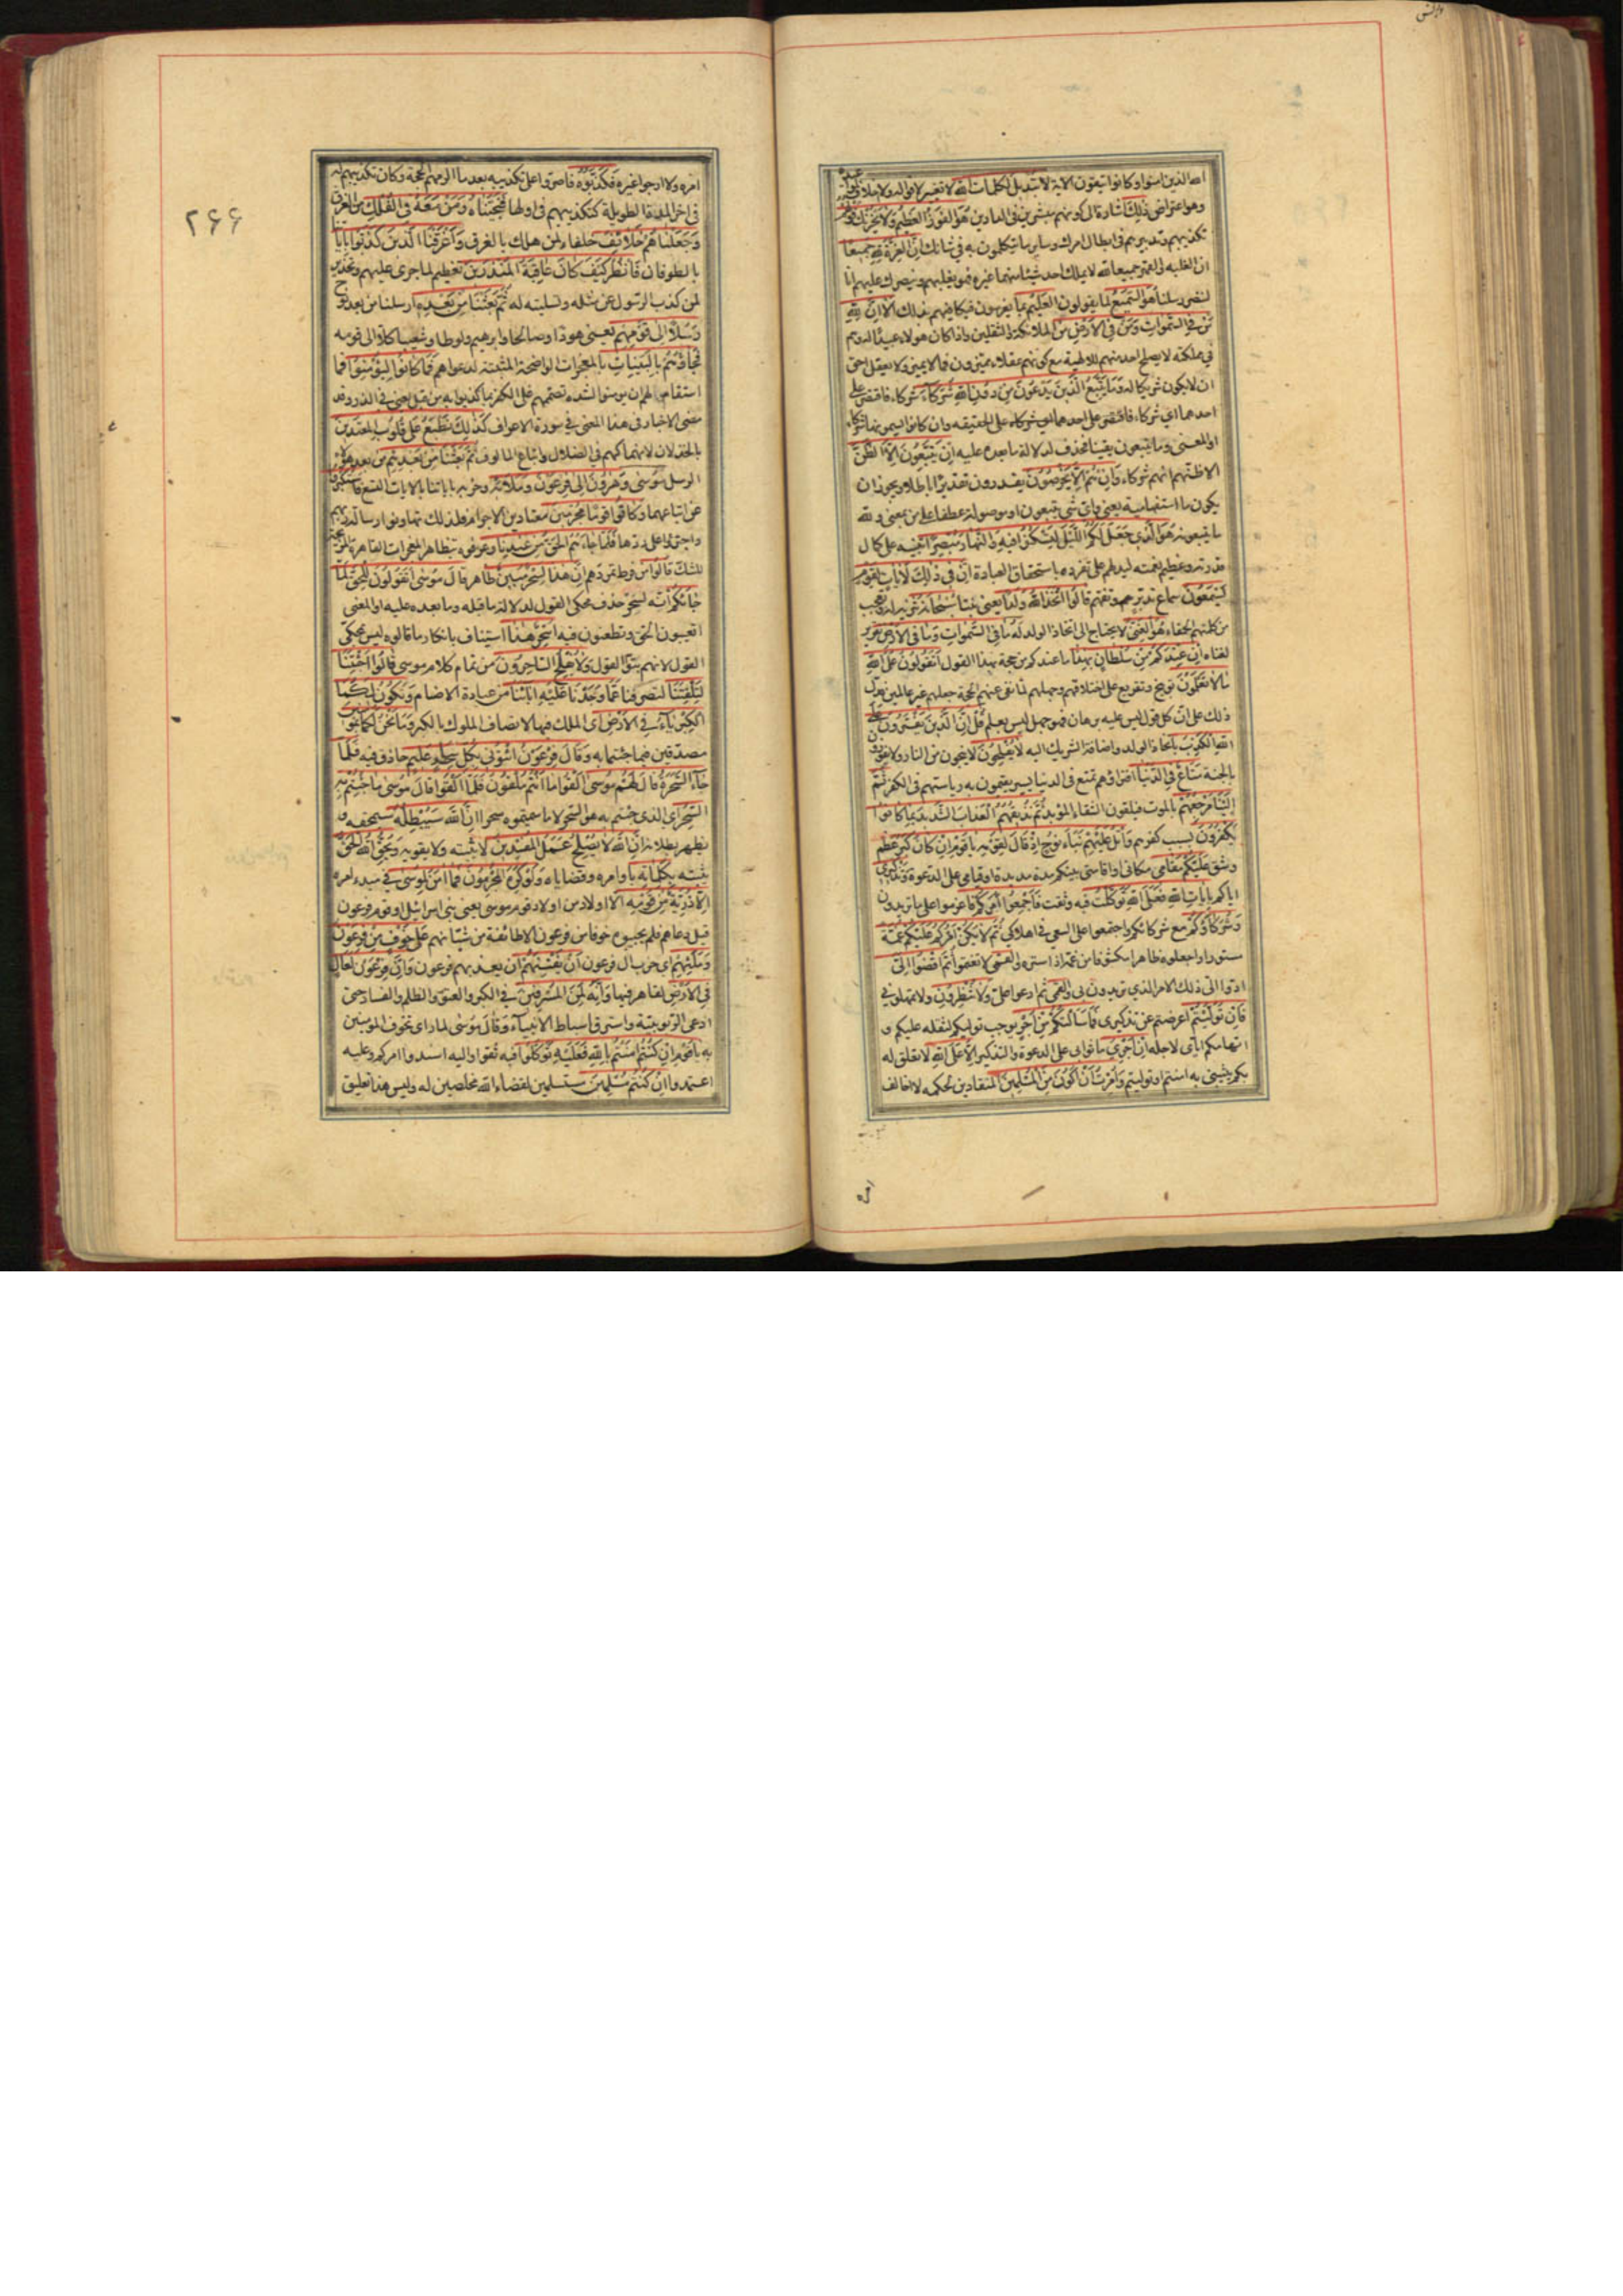 الله الذين امنوا وكانوا يتقون الاية لا تبديل لكلمات الله لا تغيير لاقواله ولا خلاف لمواعيده
وهو اعتراض ذلك اشارة الى كونهم مبشرين فى الدارين هو الفوز العظيم ولا يحزنك قولهم
تكذيبهم وتدبيرهم فى ابطال امرك وساير ما يتكلمون به فى شانك ان العزة لله جميعا
ان الغلبة والقهر جميعا لله لا يملك احد شيئا منهما غيره فهو يغلبهم وينصرك عليهم انا
لننصر رسلنا هو السميع لما يقولون العليم بما يعزمون فيكافيهم بذلك الا ان لله
من فى السموات ومن فى الارض من الملائكة والثقلين واذا كان هؤلاء عبيدا له وهم
فى مملكته لا يصلح احد منهم للالهية مع كونهم عقلاء مميزون فما لا يميز ولا يعقل احق
ان لا يكون شريكا له وما يتبع الذين يدعون من دون الله شركاء شركاء فاقتصر على
احدهما اى شركاء فاقتصر على احدهما اى شركاء على الحقيقة وان كانوا يسمونها شركاء
او المعنى وما يتبعون يقينا فحذف لدلالة ما بعده عليه ان يتبعون الا الظن
الا ظنهم انهم شركاء وان هم الا يخرصون يقدرون تقديرا باطلا ويجوز ان
يكون ما استفهامية يعنى واى شى يتبعون او موصولة عطفا على من بمعنى ولله
ما يتبعونه هو الذى جعل لكم الليل لتسكنوا فيه والنهار مبصرا تنبيه على كمال
قدرته وعظيم نعمته ليدلهم على تفرده باستحقاق العبادة ان فى ذلك لايات لقوم
يسمعون سماع تدبر وتفهم قالوا اتخذ الله ولدا يعنى تبنا سبحانه تنزيه له وتعجب
من كلمتهم الحمقاء هو الغنى لا يحتاج الى اتخاذ الولد له ما فى السموات وما فى الارض تقرير
لغناه ان عندكم من سلطان بهذا ما عندكم من حجة بهذا القول اتقولون على الله
ما لا تعلمون توبيخ وتقريع على اختلاقهم وجهلهم لما نفى عنهم الحجة جعلهم غير عالمين فدل
ذلك على ان كل قول ليس عليه برهان فهو جهل ليس بعلم قل ان الذين يفترون على
الله الكذب باتخاذ الولد واضافة الشريك اليه لا يفلحون لا ينجون من النار ولا يفوزون
بالجنة متاع فى الدنيا افتراؤهم تمتع فى الدنيا يسير يقيمون به رياستهم فى الكفر ثم
الينا مرجعهم بالموت فيلقون الشقاء المؤبد ثم نذيقهم العذاب الشديد بما كانوا
يكفرون بسبب كفرهم واتل عليهم نبأ نوح اذ قال لقومه يا قوم ان كان كبر عظم
وشق عليكم مقامى مكانى او اقامتى بينكم مدة مديدة او قيامى على الدعوة وتذكيرى
اياكم بايات الله فعلى الله توكلت فبه وثقت فاجمعوا امركم فاعزموا على ما تريدون
وشركاؤكم مع شركائكم واجتمعوا على السعى فى اهلاكى ثم لا يكن امركم عليكم غمة
مستورا واجعلوه ظاهرا مكشوفا من غمه اذا ستره والقمى لا تغتموا ثم اقضوا الى
ادوا الى ذلك الامر الذى تريدون بى والقمى ثم ادعوا على ولا تنظرون ولا تمهلونى
فان توليتم اعرضتم عن تذكيرى فما سالتكم من اجر يوجب توليكم لثقله عليكم و
اتهامكم اياى لاجله ان اجرى ما ثوابى على الدعوة والتذكير الا على الله لا تعلق له
بكم يثيبنى به امنتم او توليتم وامرت ان اكون من المسلمين المنقادين لحكمه لا اخالف
امره
امره ولا ارجوا غيره فكذبوه فاصروا على تكذيبه بعد ما الزمهم الحجة وكان تكذيبهم له
فى اخر المدة الطويلة كتكذيبهم فى اولها فنجيناه ومن معه فى الفلك من الغرق
وجعلناهم خلائف خلفاء لمن هلك بالغرق واغرقنا الذين كذبوا باياتنا
بالطوفان فانظر كيف كان عاقبة المنذرين تعظيم لما جرى عليهم وتحذير
لمن كذب الرسول عن مثله وتسلية له ثم بعثنا من بعده ارسلنا من بعد نوح
رسلا الى قومهم يعنى هودا وصالحا وابرهيم ولوطا وشعيبا كلا الى قومه
فجاؤهم بالبينات بالمعجزات الواضحة المثبتة لدعواهم فما كانوا ليؤمنوا فما
استقام لهم ان يؤمنوا لشدة تصممهم على الكفر بما كذبوا به من قبل يعنى فى الذر وقد
مضى الاخبار فى هذا المعنى فى سورة الاعراف كذلك نطبع على قلوب المعتدين
بالخذلان لانهماكهم فى الضلال واتباع المالوف ثم بعثنا من بعدهم من بعد هؤلاء
الرسل موسى وهرون الى فرعون وملائه وحزبه باياتنا بالايات التسع فاستكبروا
عن اتباعهما وكانوا قوما مجرمين معتادين الاجرام فلذلك تهاونوا رسالة ربهم
واجترؤا على ردها فلما جاءهم الحق من عندنا وعرفوه بتظاهر المعجزات القاهرة المزيحة
للشك قالوا من فرط تمردهم ان هذا لسحر مبين ظاهر قال موسى اتقولون للحق لما
جاءكم انه لسحر حذف محكى القول لدلالة ما قبله وما بعده عليه او المعنى
اتعيبون الحق وتطعنون فيه اسحر هذا استيناف بانكار ما قالوه ليس بمحكى
القول لانهم بتوا القول ولا يفلح الساحرون من تمام كلام موسى قالوا اجئتنا
لتلفتنا لتصرفنا عما وجدنا عليه اباءنا من عبادة الاصنام وتكون لكما
الكبرياء فى الارض اى الملك فيها لاتصاف الملوك بالكبر وما نحن لكما بمؤمنين
مصدقين فيما جئتما به وقال فرعون ائتونى بكل سحار عليم حاذق فيه فلما
جاء السحرة قال لهم موسى القوا ما انتم ملقون فلما القوا قال موسى ما جئتم به
السحر اى الذى جئتم به هو السحر لا ما سميتموه سحرا ان الله سيبطله سيمحقه و
يظهر بطلانه ان الله لا يصلح عمل المفسدين لا يثبته ولا يقويه ويحق الله الحق
يثبته بكلماته باوامره وقضاياه ولو كره المجرمون فما امن لموسى فى مبدء امره
الا ذرية من قومه الا اولاد من اولاد قوم موسى يعنى بنى اسرائيل او قوم فرعون
قبل دعاهم فلم يجيبوه خوفا من فرعون الا طائفة من شبانهم على خوف من فرعون
وملئهم اى حزب ال فرعون ان يفتنهم ان يعذبهم فرعون وان فرعون لعال
فى الارض لقاهر فيها وانه لمن المسرفين فى الكبر والعتو والظلم والفساد حتى
ادعى الربوبية واسترق اسباط الانبياء وقال موسى لما راى تخوف المومنين
به يا قوم ان كنتم امنتم بالله فعليه توكلوا فبه ثقوا واليه اسندوا امركم وعليه
اعتمدوا ان كنتم مسلمين مستسلمين لقضاء الله مخلصين له وليس هذا تعليق
۲۶۶